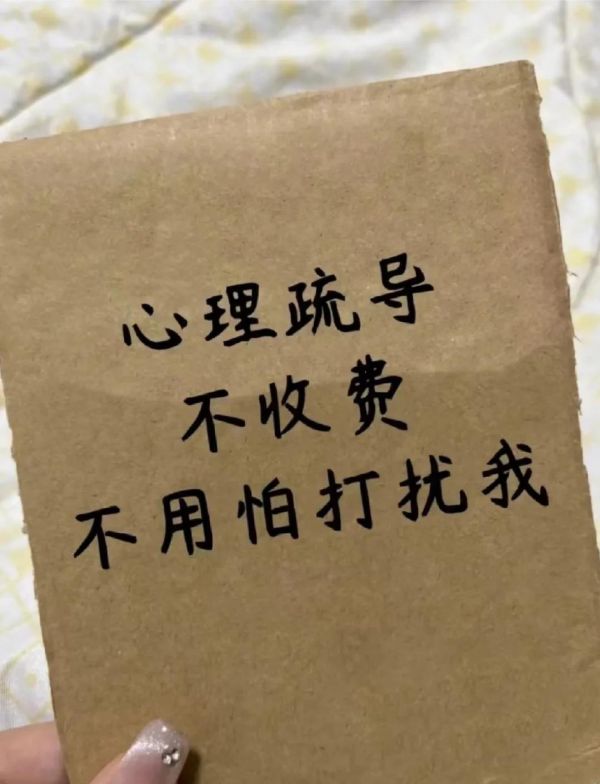 心理疏导
不收费
不用怕打扰我